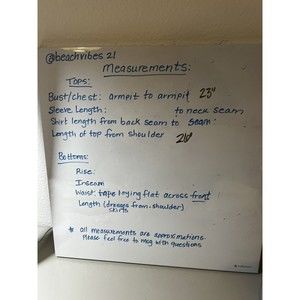 @beachvibes 21
Measurements:
Tops:
Bust/chest: armpit to armpit 23"
Sleeve Length: to neck seam
Shirt length from back seam to seam:
Length of top from shoulder
Bottoms:
Rise:
Inseam
Waist: tape laying flat across front
Length (dresses from shoulder)
skirts
* all measurements are approximations.
Please feel free to msg with questions